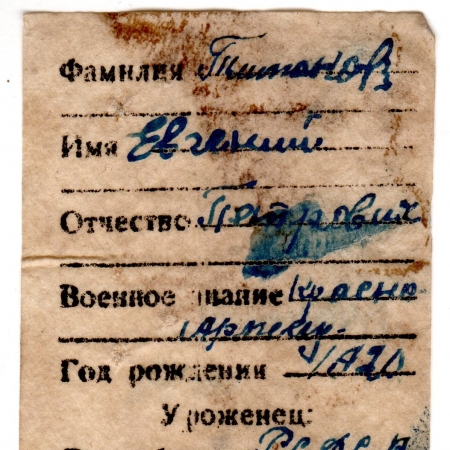 Фамилия Титанов
Имя Евгений
Отчество Петрович
Военное звание Красно
армеец
Год рождения 1920
Уроженец: